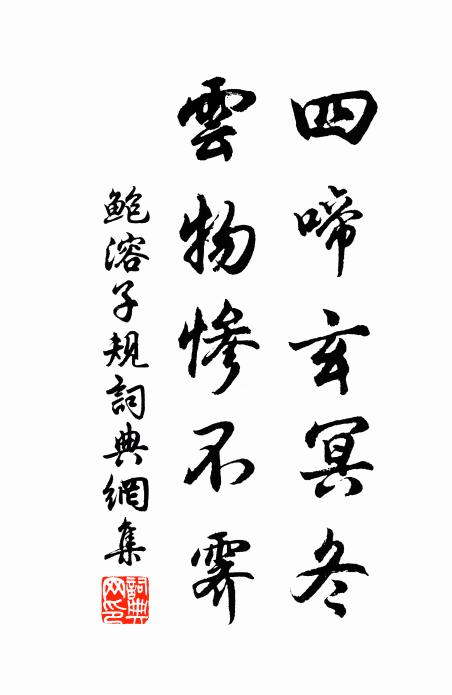 四啼玄冥冬
雲物慘不霽
鲍溶子規詞典網集
詞典网印